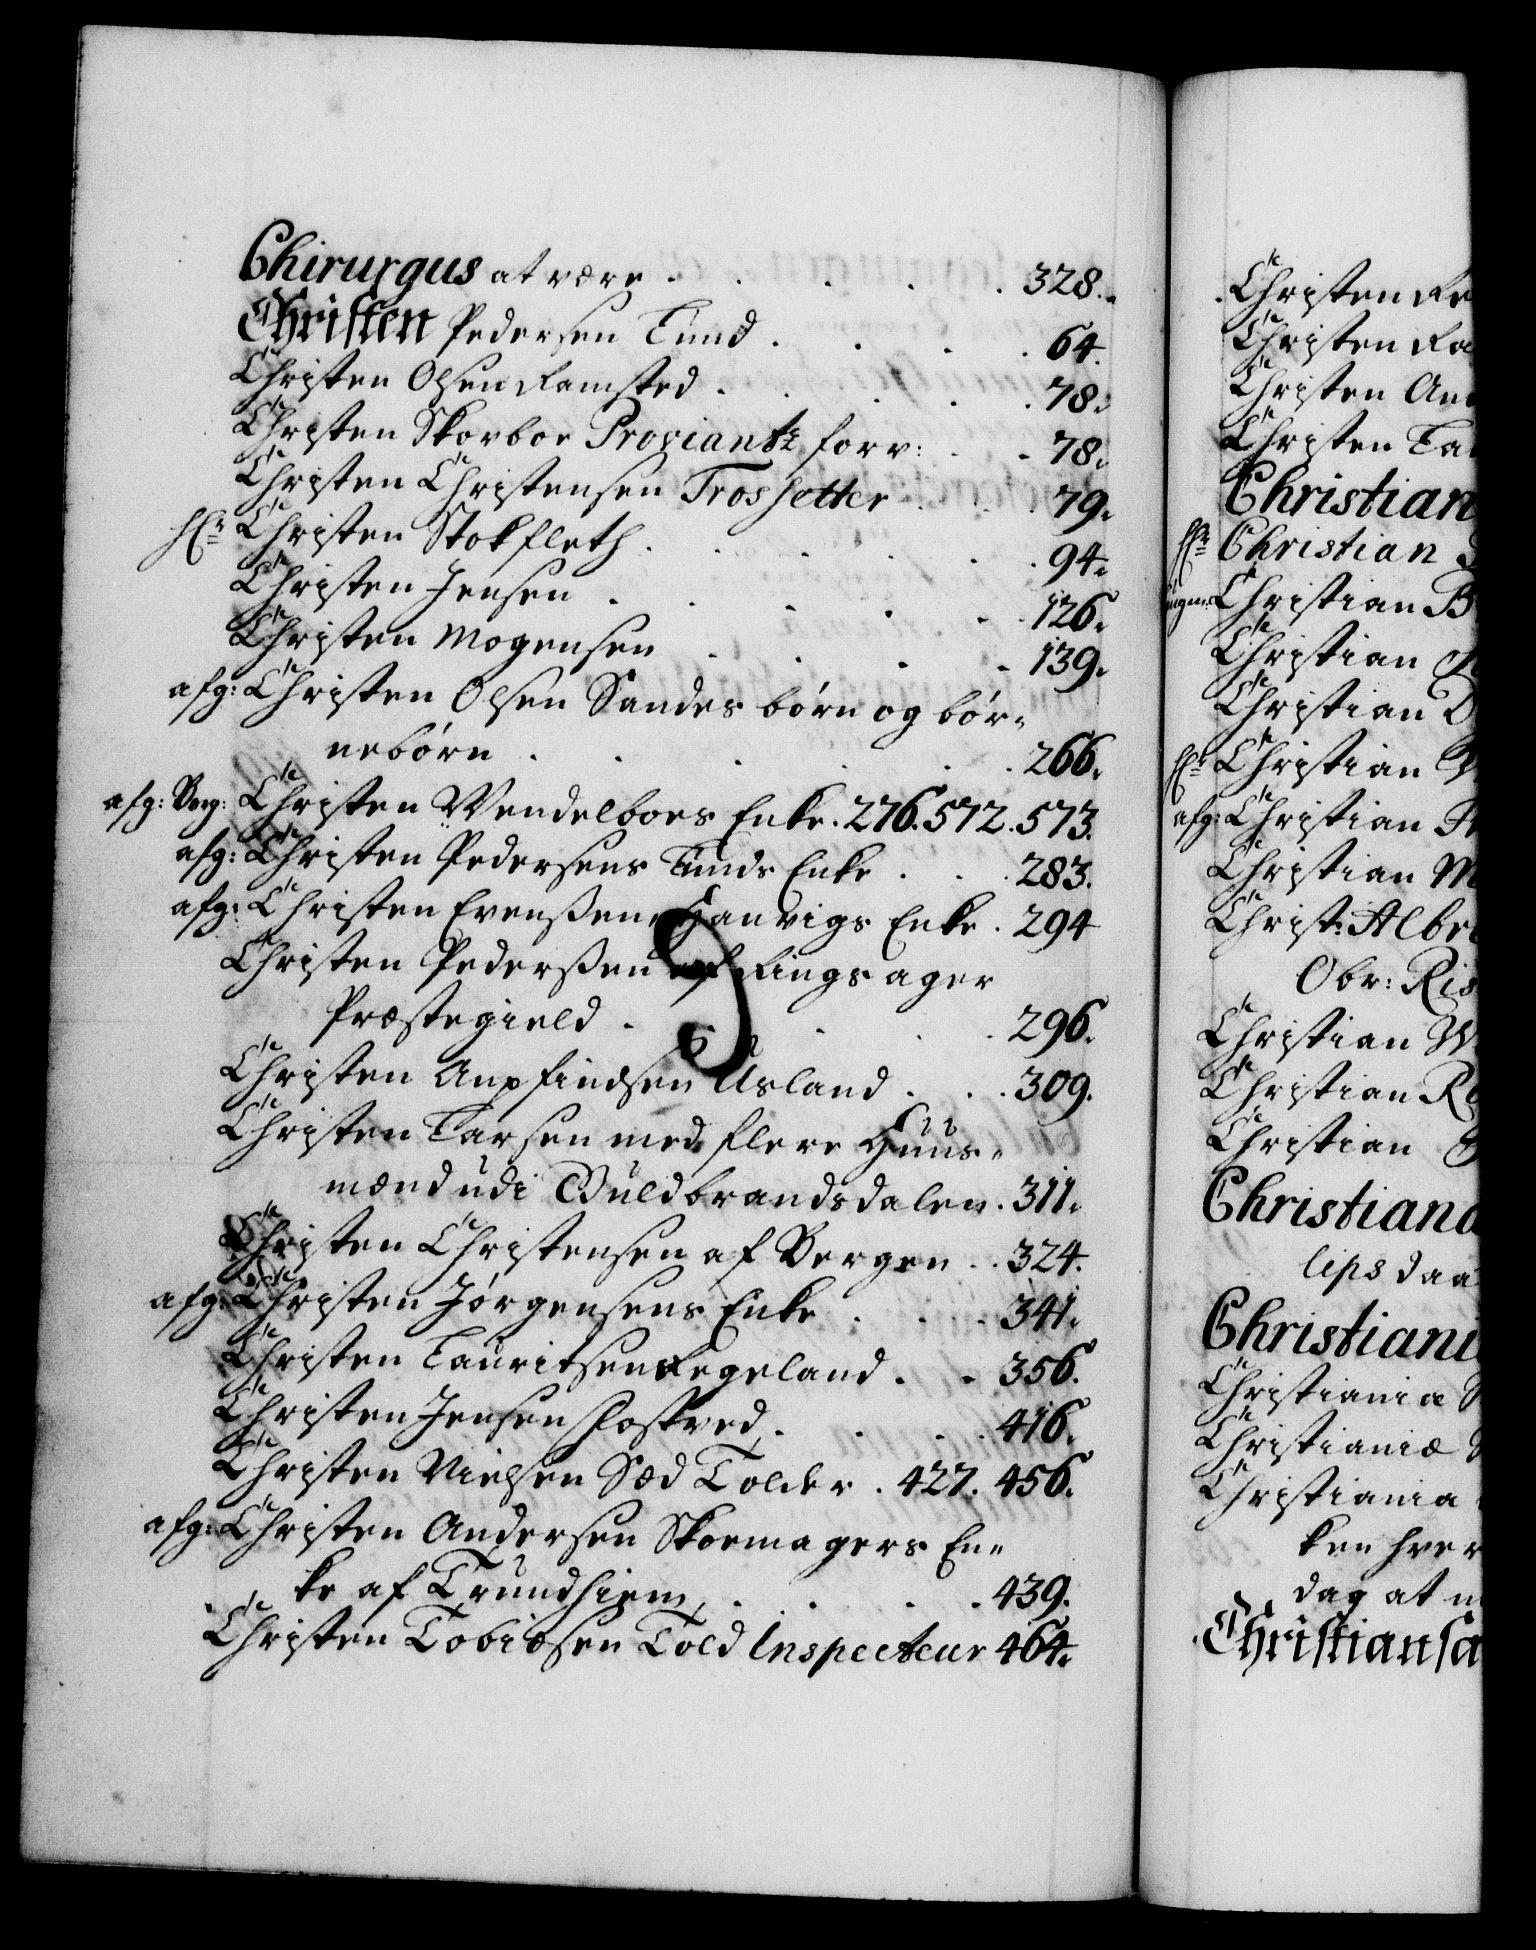 Chirurgus at være . . . . . 328.
Christen Pedersen Lund . . . . 64.
Christen Olsen Ramsted . . . . 78.
Christen Skovboe Proviantz forv: . . 78.
Christen Christensen Trossetter . . 79.
Hr: Christen Stokfleth . . . . . 94.
Christen Jensen . . . . . 126.
Christen Mogensen . . . . 139.
afg: Christen Olsen Sandes børn og bør-
nebørn . . . . . . 266.
afg: Borg: Christen Wendelboes Enke . 276. 572. 573.
afg: Christen Pedersens Lunds Enke . . . 283.
afg: Christen Evenssen Hanvigs Enke . 294
Christen Pederssen af Ringsager
Præstegield . . . . 296.
Christen Anfindsen Usland . . . 309.
Christen Larsen med flere Huus-
mænd udi Guldbrandsdalen . 311.
Christen Christensen af Bergen . . 324.
afg: Christen Jørgensens Enke . . . 341.
Christen Lauritsen Fegeland . . 356.
Christen Jensen Hostved . . . 416.
Christen Nielsen Sæd Tolder . 427. 456.
afg: Christen Andersen Skoemagers En-
ke af Trundhiem . . . . 439.
Christen Tobiæsen Told Inspecteur 464.
Christen Re
Christen Ra
Christen An
Christen La
Christian
Hr: Christian
Christian B
Christian
Christian D
Hr: Christian
afg: Christian
Christian M
Christ: Albr
Obr: Ris
Christian W
Christian R
Christian
Christiana
lips daa
Christiani
Christiania
Christianiæ
Christiania
ken hver
dag at
Christiansa